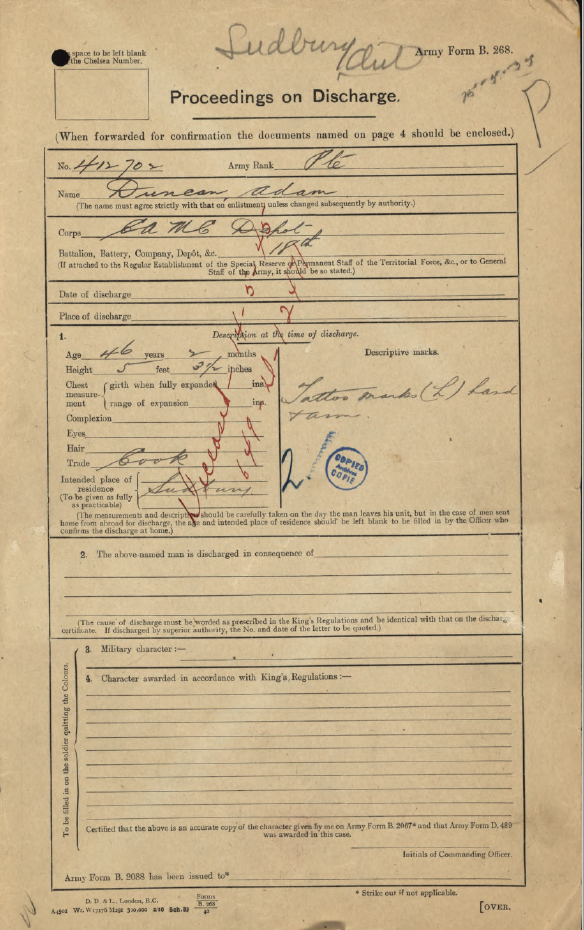 Sudbury Ont
space to be left blank
the Chelsea Number.
Army Form B. 268.
P
Proceedings on Discharge.
(When forwarded for confirmation the documents named on page 4 should be enclosed.)
No. 412702 Army Rank Pte
Name Duncan Adam
(The name must agree strictly with that on enlistment unless changed subsequently by authority.)
Corps CAMC Depot
Battalion, Battery, Company, Depôt, &c. 18th
(If attached to the Regular Establishment of the Special Reserve or Permanent Staff of the Territorial Force, &c., or to General
Staff of the Army, it should be so stated.)
Date of discharge
Place of discharge
1. Description at the time of discharge.
Age 46 years 2 months
Height 5 feet 3½ inches
Chest measurement { girth when fully expanded ins.
range of expansion ins.
Complexion
Eyes
Hair
Trade Cook
Intended place of residence
(To be given as fully as practicable)
Sudbury
Descriptive marks.
Tattoo marks (L) hand
+ arm.
Deceased
2
COPIED
Archives
COPIE
(The measurements and description should be carefully taken on the day the man leaves his unit, but in the case of men sent
home from abroad for discharge, the age and intended place of residence should be left blank to be filled in by the Officer who
confirms the discharge at home.)
2. The above-named man is discharged in consequence of
(The cause of discharge must be worded as prescribed in the King's Regulations and be identical with that on the discharge
certificate. If discharged by superior authority, the No. and date of the letter to be quoted.)
To be filled in on the soldier quitting the Colours.
3. Military character :—
4. Character awarded in accordance with King's Regulations :—
Certified that the above is an accurate copy of the character given by me on Army Form B. 2067* and that Army Form D. 489
was awarded in this case.
Initials of Commanding Officer.
Army Form B. 9088 has been issued to*
* Strike out if not applicable.
D. D. & L., London, E.C.
Forms
B. 268
[OVER.